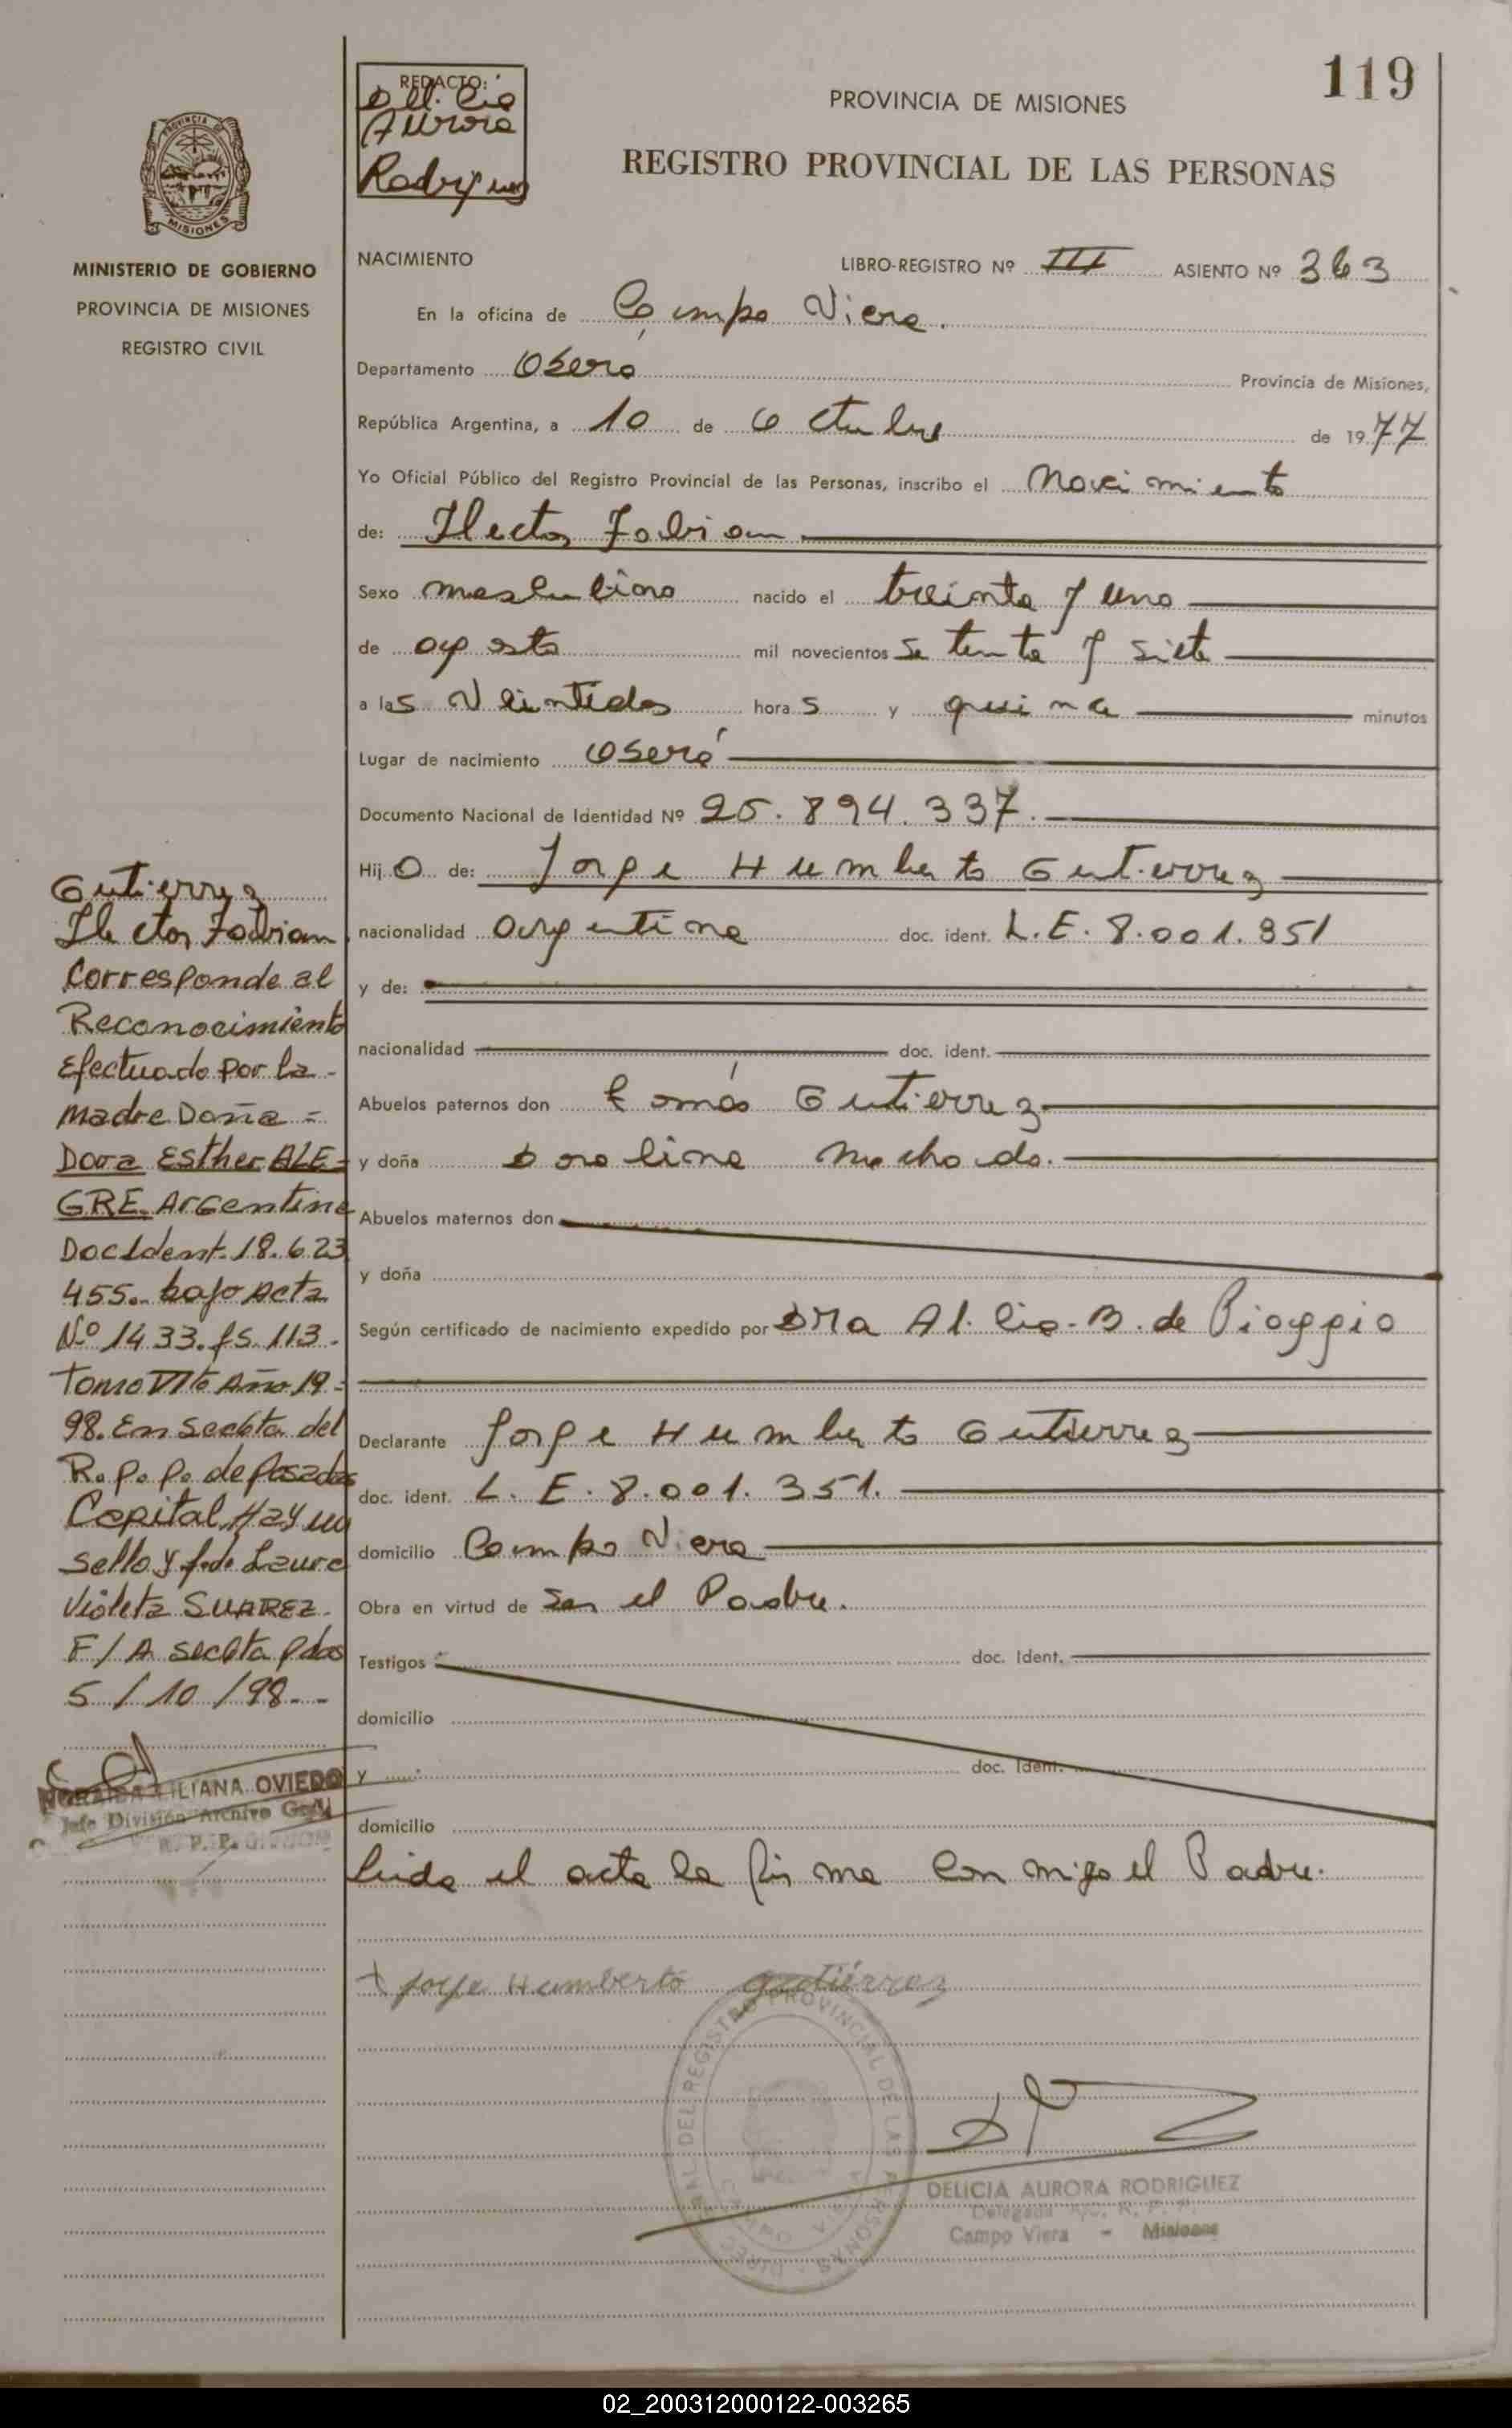 119
REDACTO:
Delicia
Aurora
Rodriguez
PROVINCIA DE MISIONES
REGISTRO PROVINCIAL DE LAS PERSONAS
PROVINCIA DE
MISIONES
MINISTERIO DE GOBIERNO
PROVINCIA DE MISIONES
REGISTRO CIVIL
NACIMIENTO LIBRO-REGISTRO Nº III ASIENTO Nº 363
En la oficina de Campo Viera.
Departamento Oberá Provincia de Misiones,
República Argentina, a 10 de Octubre de 1977
Yo Oficial Público del Registro Provincial de las Personas, inscribo el Nacimiento
de: Hector Fabian
Sexo masculino nacido el treinta y uno
de agosto mil novecientos setenta y siete
a las veintidos horas y quince minutos
Lugar de nacimiento Oberá
Documento Nacional de Identidad Nº 25.894.337.
Hijo de: Jorge Humberto Gutierrez
nacionalidad argentina doc. ident. L.E. 8.001.351
y de:
nacionalidad doc. ident.
Abuelos paternos don Tomás Gutierrez
y doña Doralina Machado.
Abuelos maternos don
y doña
Según certificado de nacimiento expedido por DRA Alicia B. de Pioggio
Declarante Jorge Humberto Gutierrez
doc. ident. L. E. 8.001.351.
domicilio Campo Viera
Obra en virtud de ser el Padre.
Testigos doc. Ident.
domicilio
y doc. Ident.
domicilio
Leida el acta la firma conmigo el Padre.
+ Jorge Humberto Gutiérrez
Gutierrez
Hector Fabian
Corresponde al
Reconocimiento
Efectuado por la
Madre Doña =
Dora Esther ALE-
GRE. Argentina
Doc Ident. 18.623
455. bajo Acta
Nº 1433. fs. 113.
Tomo VIIº Año 19-
98. En Seccta del
R.p.p. de Posadas
Capital. Hay un
sello y fdo Laura
Violeta SUAREZ.
F/A Seccta Pdas
5/10/98
LILIANA OVIEDO
Jefe División Archivo Gral
R. P. P.
DEL REGISTRO PROVINCIAL DE LAS PERSONAS
DELICIA AURORA RODRIGUEZ
Delegada R. P. P.
Campo Viera - Misiones
02_200312000122-003265